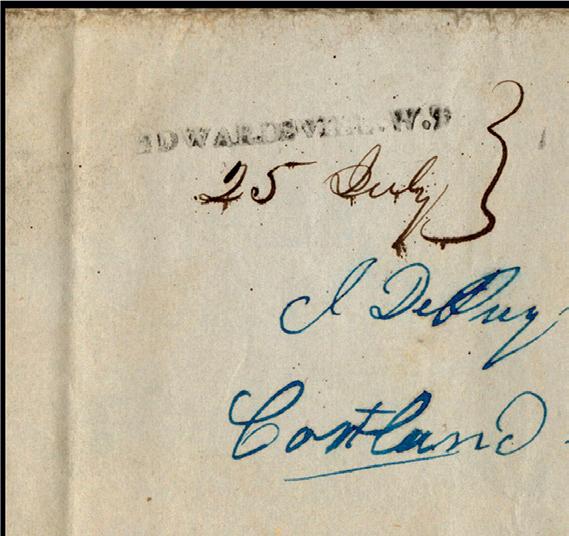 EDWARDSVILL. W.T
25 July
J DePuy
Cortland